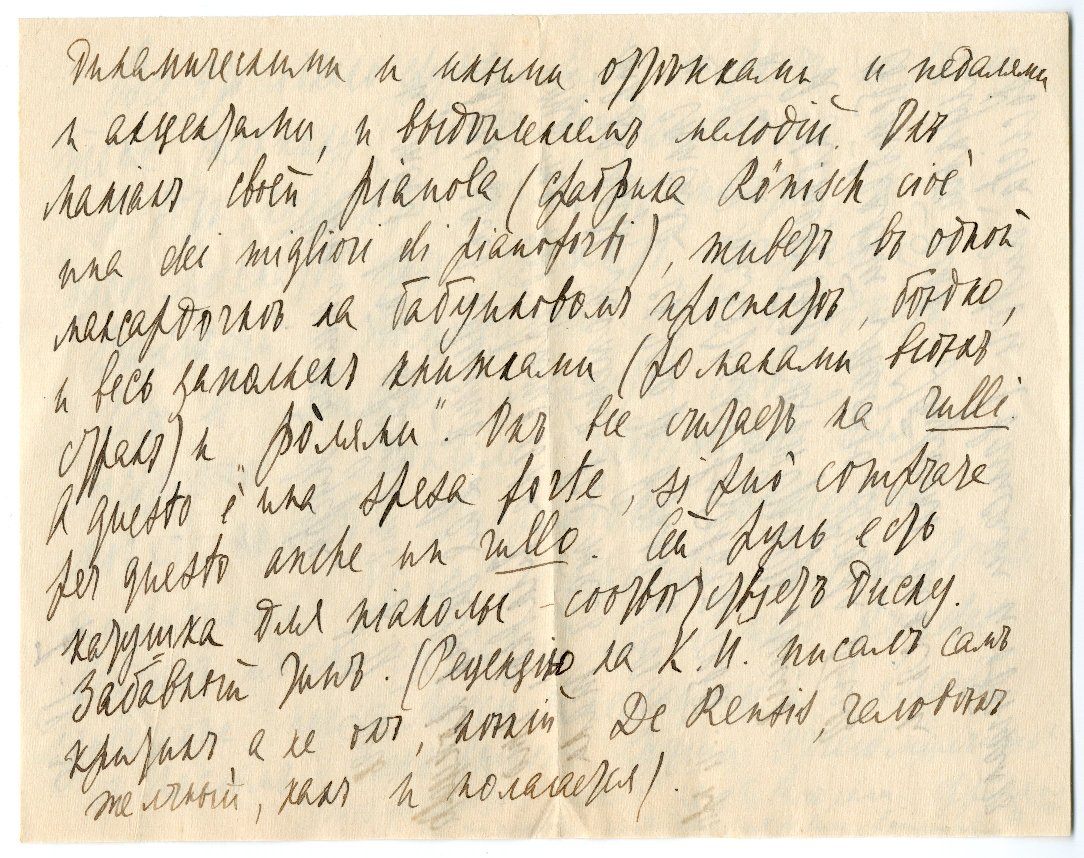 динамическими и иными оттѣнками и педалями
и акцентами, и выдѣленіемъ мелодій. Онъ
маніакъ своей pianola (фабрика Rönisch cioè
una dei migliori di pianoforti), живетъ въ одной
мансардочкѣ на Бабуиновомъ проспектѣ, бѣдно,
и весь заполненъ книжками (романами всѣхъ
странъ) и „ролями“. Онъ все считаетъ на rulli.
A questo è una spesa forte, si può comprare
per questo anche un rullo. Сей руль есть
катушка для піанолы – соотвѣтствуетъ диску.
Забавный типъ. (Рецензію на К. И. писалъ самъ
критикъ, а не онъ, нѣкій De Rensis, человѣкъ
желчный, какъ и полагается).